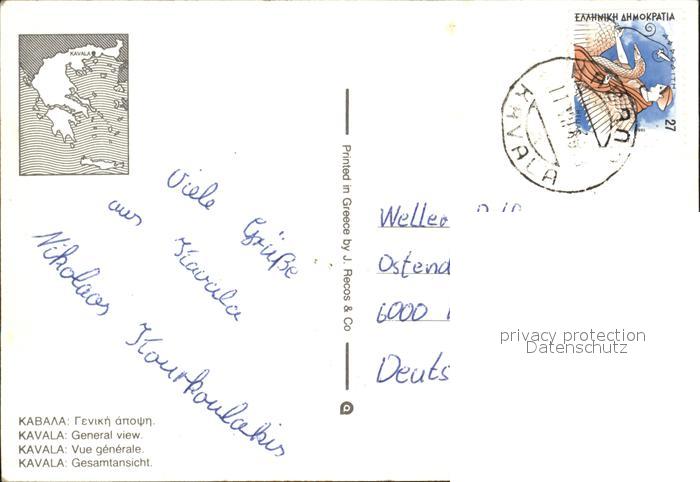 ΕΛΛΗΝΙΚΗ ΔΗΜΟΚΡΑΤΙΑ
ΑΦΡΟΔΙΤΗ
27
KAVALA
KAVALA
Viele Grüße
aus Kavala
Nikolaos Kourkoulakis
Printed in Greece by J. Recos & Co
Weller
Ostend
6000
Deuts
privacy protection
Datenschutz
ΚΑΒΑΛΑ: Γενική άποψη.
KAVALA: General view.
KAVALA: Vue générale.
KAVALA: Gesamtansicht.